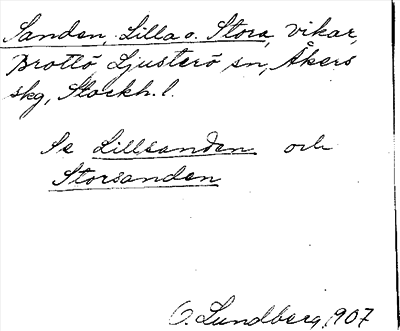 Sanden, Lilla o. Stora, vikar,
Brottö Ljusterö sn, Åkers
skg, Stockh. l.
Se Lillsanden och
Storsanden
O. Lundberg 1907